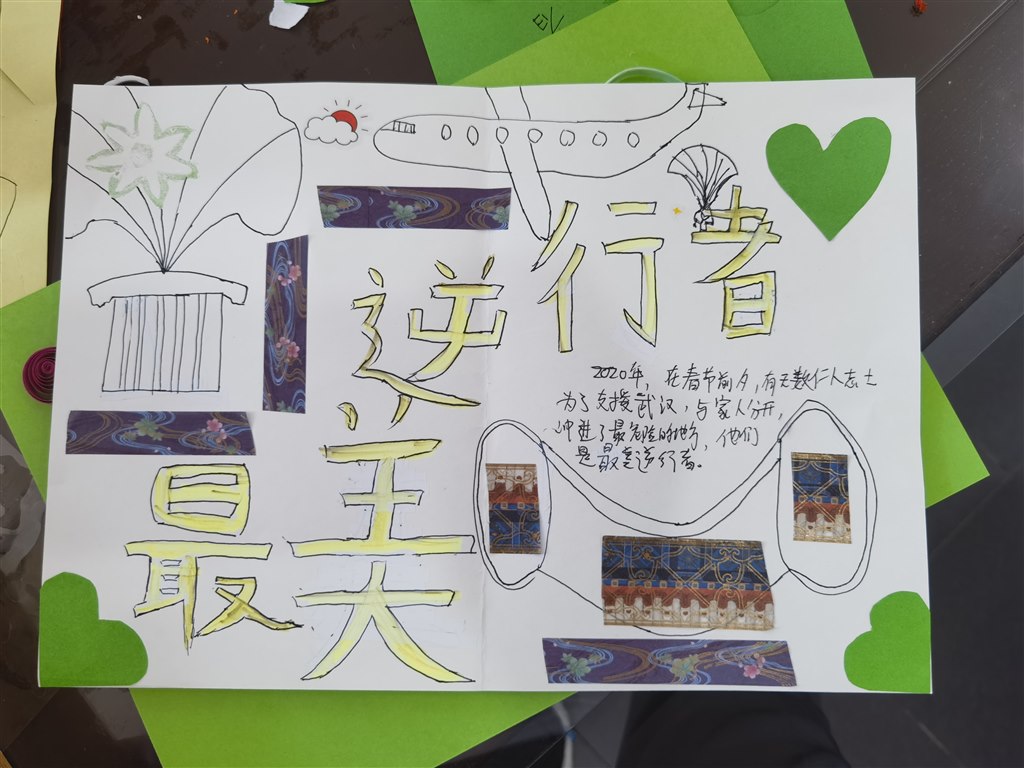 最美
逆行者
2020年，在春节前夕，有无数仁人志士
为了支援武汉，与家人分开，
冲进了最危险的地方，他们
是最美逆行者。